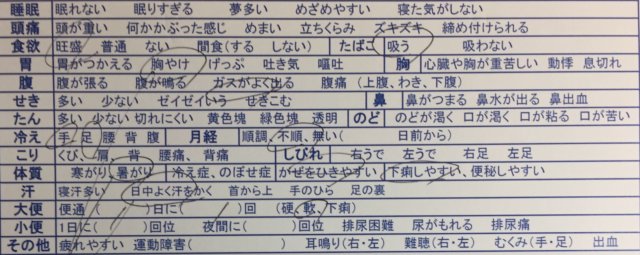 睡眠 眠れない 眠りすぎる 夢多い めざめやすい 寝た気がしない
頭痛 頭が重い 何かかぶった感じ めまい 立ちくらみ ズキズキ 締め付けられる
食欲 旺盛 普通 ない 間食(する しない) たばこ 吸う 吸わない
胃 胃がつかえる 胸やけ げっぷ 吐き気 嘔吐 胸 心臓や胸が重苦しい 動悸 息切れ
腹 腹が張る 腹が鳴る ガスがよく出る 腹痛 (上腹、わき、下腹)
せき 多い 少ない ゼイゼイいう せきこむ 鼻 鼻がつまる 鼻水が出る 鼻出血
たん 多い 少ない 切れにくい 黄色塊 緑色塊 透明 のど のどが渇く 口が渇く 口が粘る 口が苦い
冷え 手、足 腰 背 腹 月経 順調、不順、無い( 日前から)
こり くび、肩、背 腰痛、背痛 しびれ 右うで 左うで 右足 左足
体質 寒がり、暑がり 冷え症、のぼせ症 かぜをひきやすい 下痢しやすい、便秘しやすい
汗 寝汗多い 日中よく汗をかく 首から上 手のひら 足の裏
大便 便通 ( )日に( )回 (硬、軟、下痢)
小便 1日に( )回位 夜間に( )回位 排尿困難 尿がもれる 排尿痛
その他 疲れやすい 運動障害( ) 耳鳴り(右・左) 難聴(右・左) むくみ(手・足) 出血